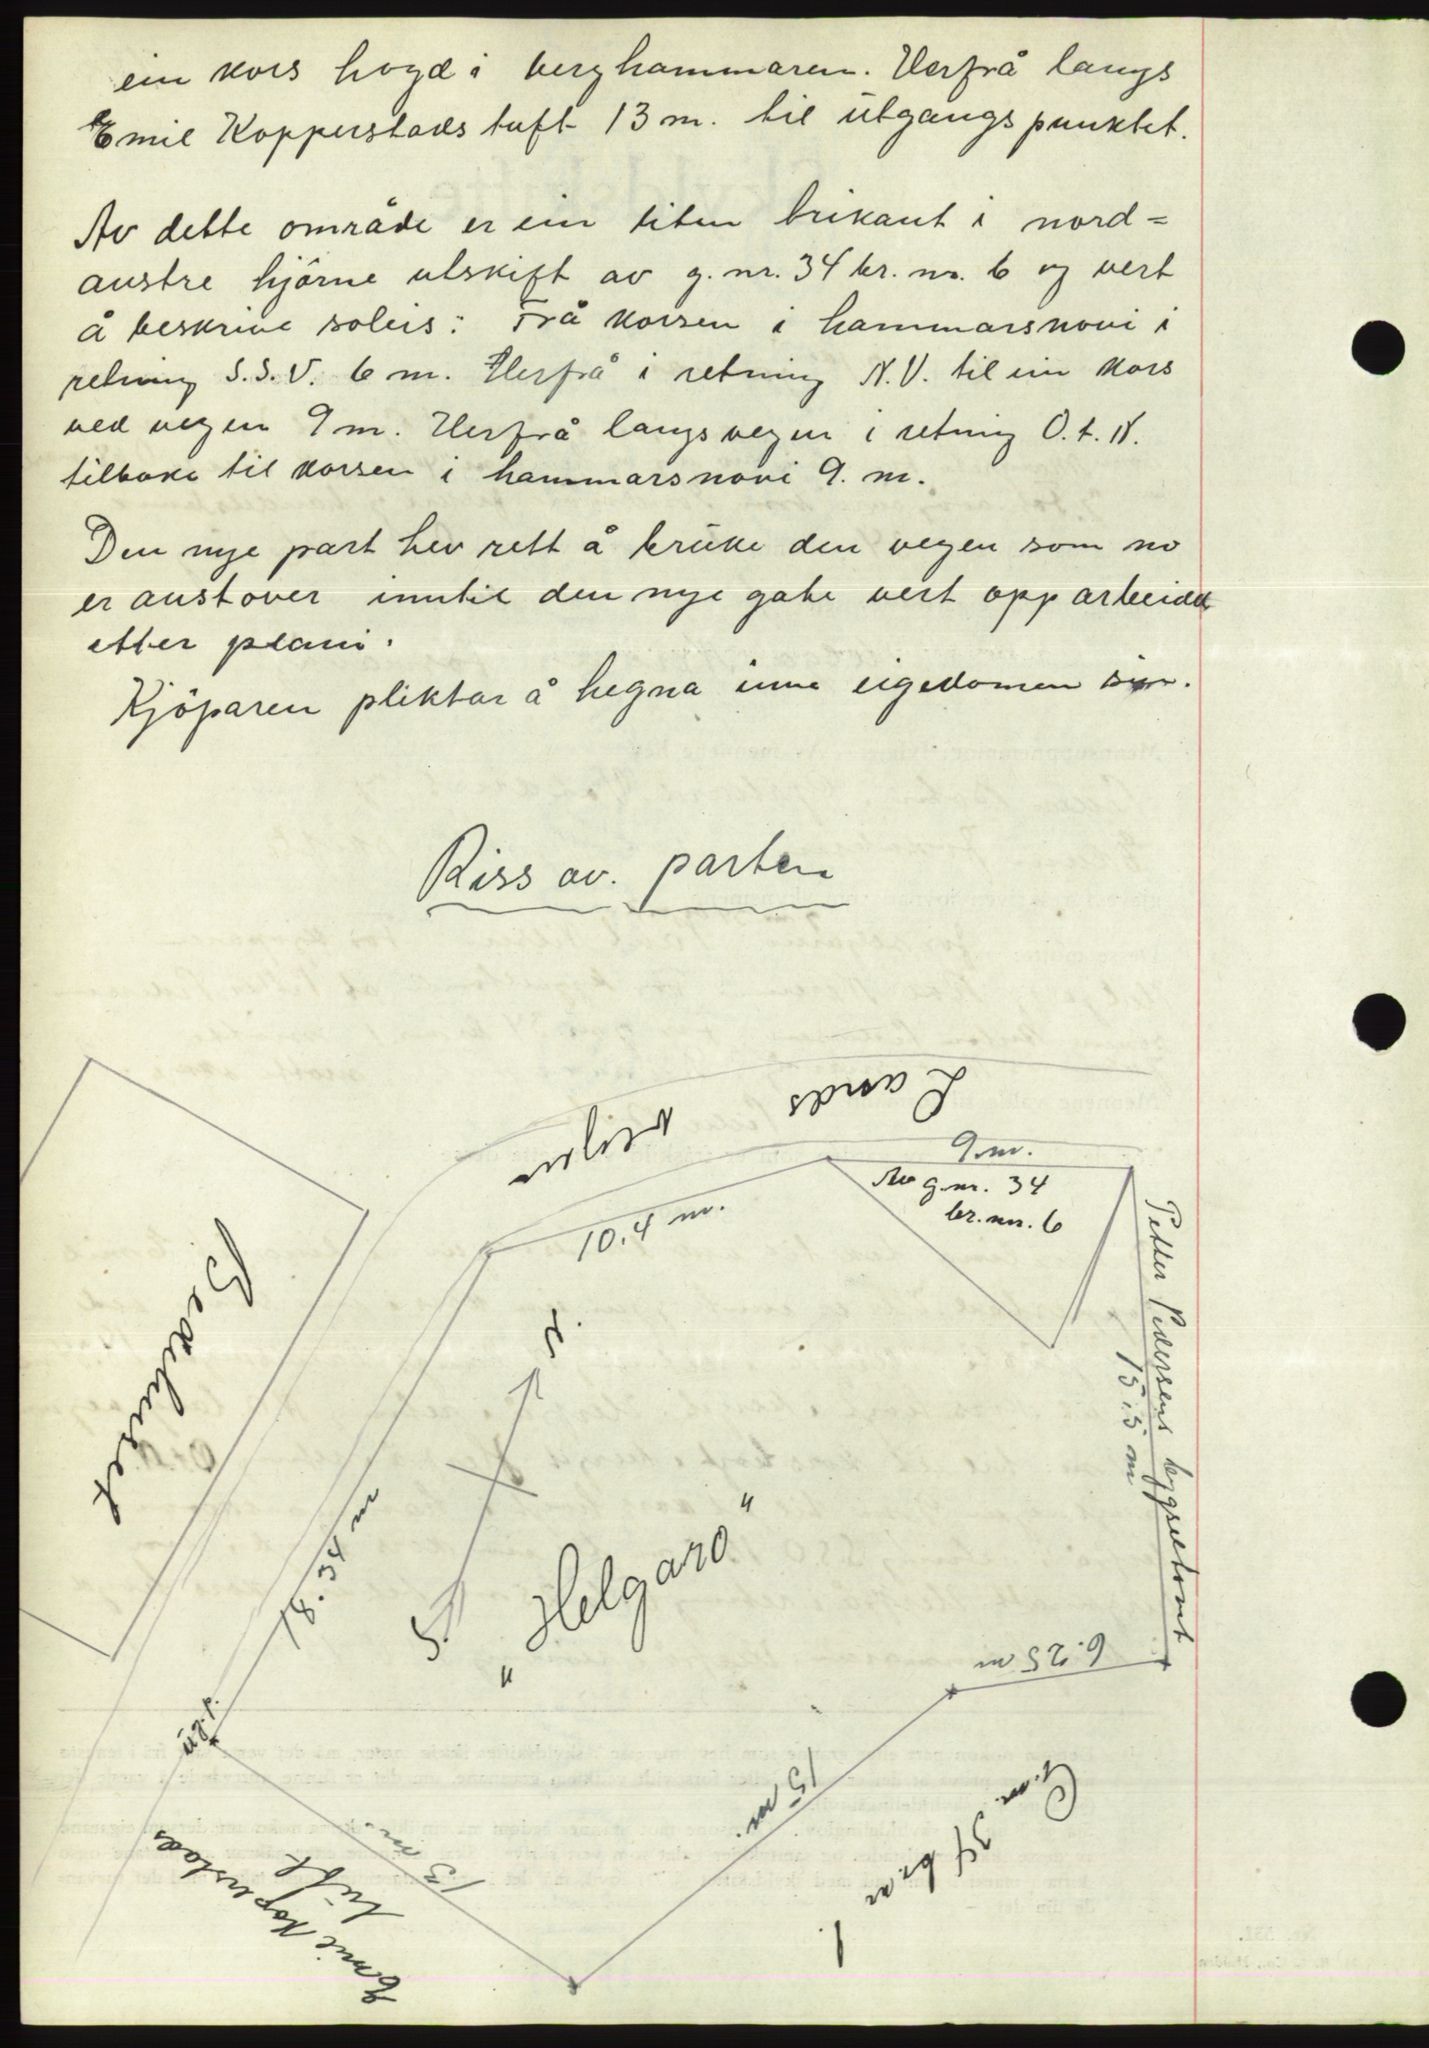 ein kors hogd i berghammaren. Herfrå langs
Emil Kopperstads tuft 13 m. til utgangspunktet.
Av dette område er ein liten trikant i nord=
austre hjörne utskift av g. nr. 34 br. nr. 6 og vert
å beskrive soleis: Frå korsen i hammarsnovi i
retning S.S.V. 6 m. Herfrå i retning N.V. til ein kors
ved vegen 9 m. Herfrå langs vegen i retning O.t.N.
tilbake til korsen i hammarsnovi 9. m.
Den nye part hev rett å bruke den vegen som no
er austover inntil den nye gate vert opparbeidd
etter plani.
Kjöparen pliktar å hegna inne eigedomen sin.
Riss av. parten
Lands vegen
9 m.
Av g. nr. 34
br. nr. 6
10.4 m.
Petter Pedersens bygsletomt
15.5 m
Bedehuset
N.
S.
18.34 m
"Helgaro"
6.25 m
u.g.p.
15 m.
13 m.
G. nr. 34 br. nr 1.
Emil Kopperstads
tuft